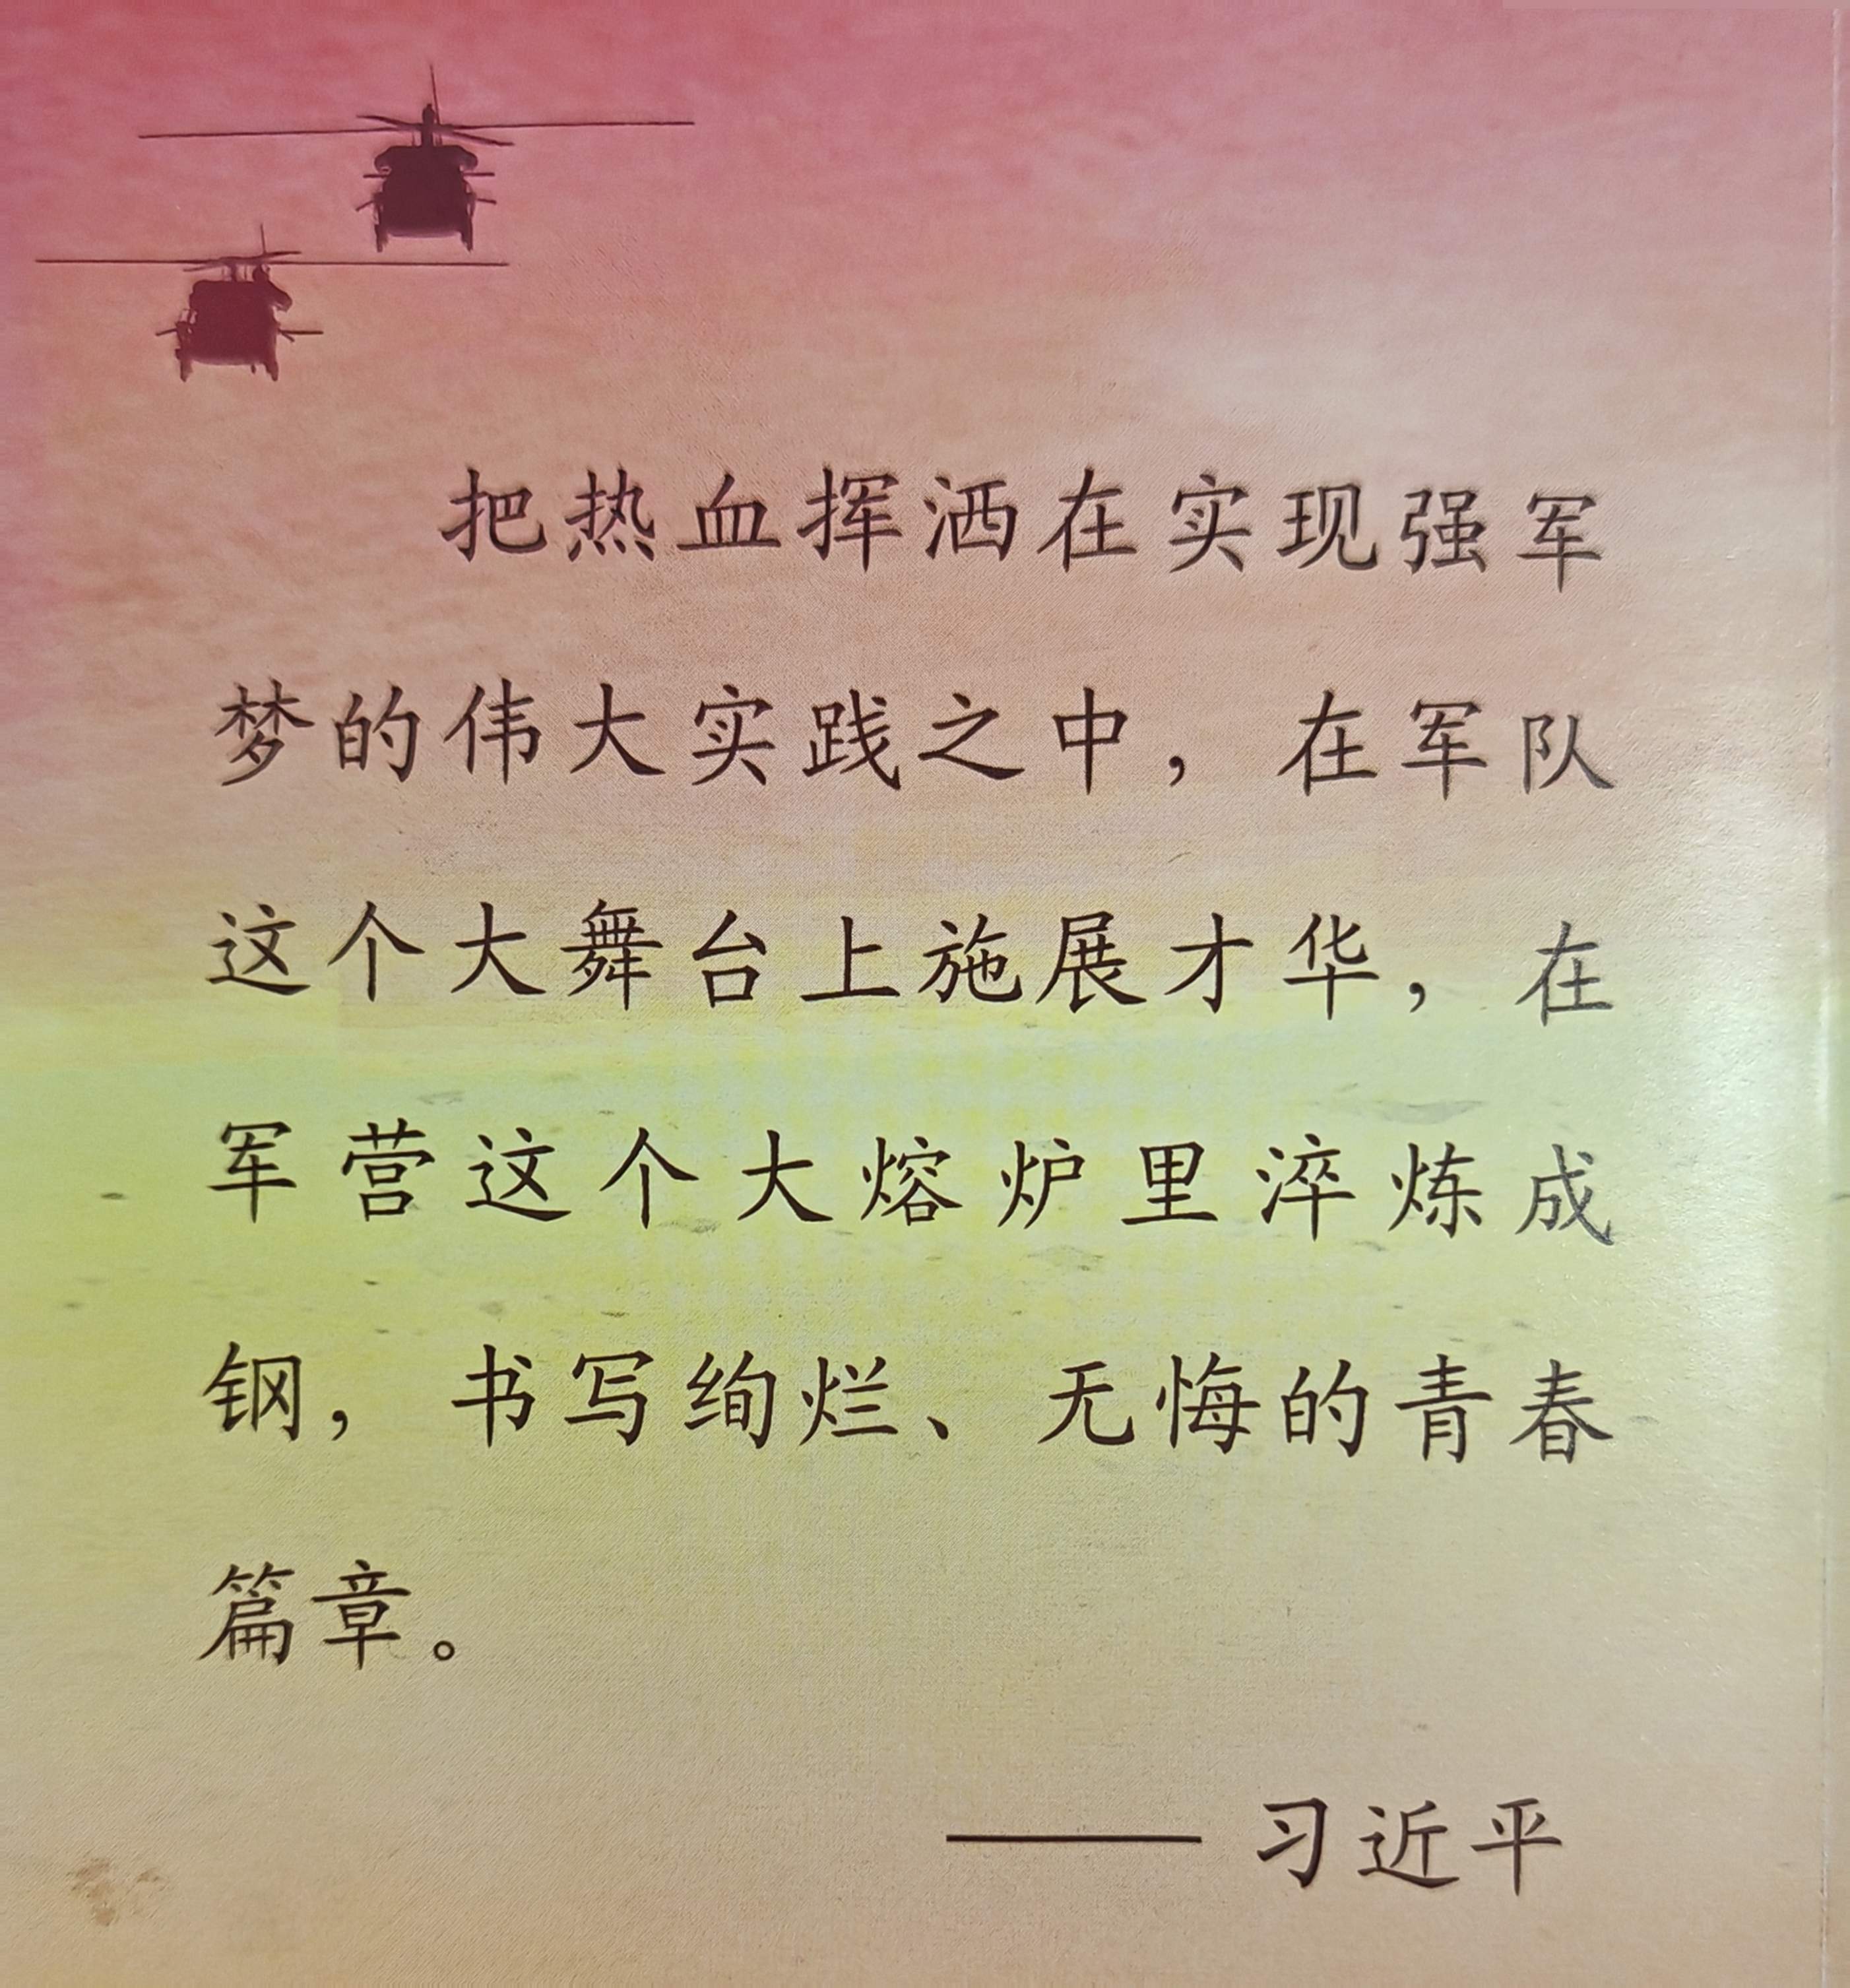 把热血挥洒在实现强军
梦的伟大实践之中，在军队
这个大舞台上施展才华，在
军营这个大熔炉里淬炼成
钢，书写绚烂、无悔的青春
篇章。
——习近平